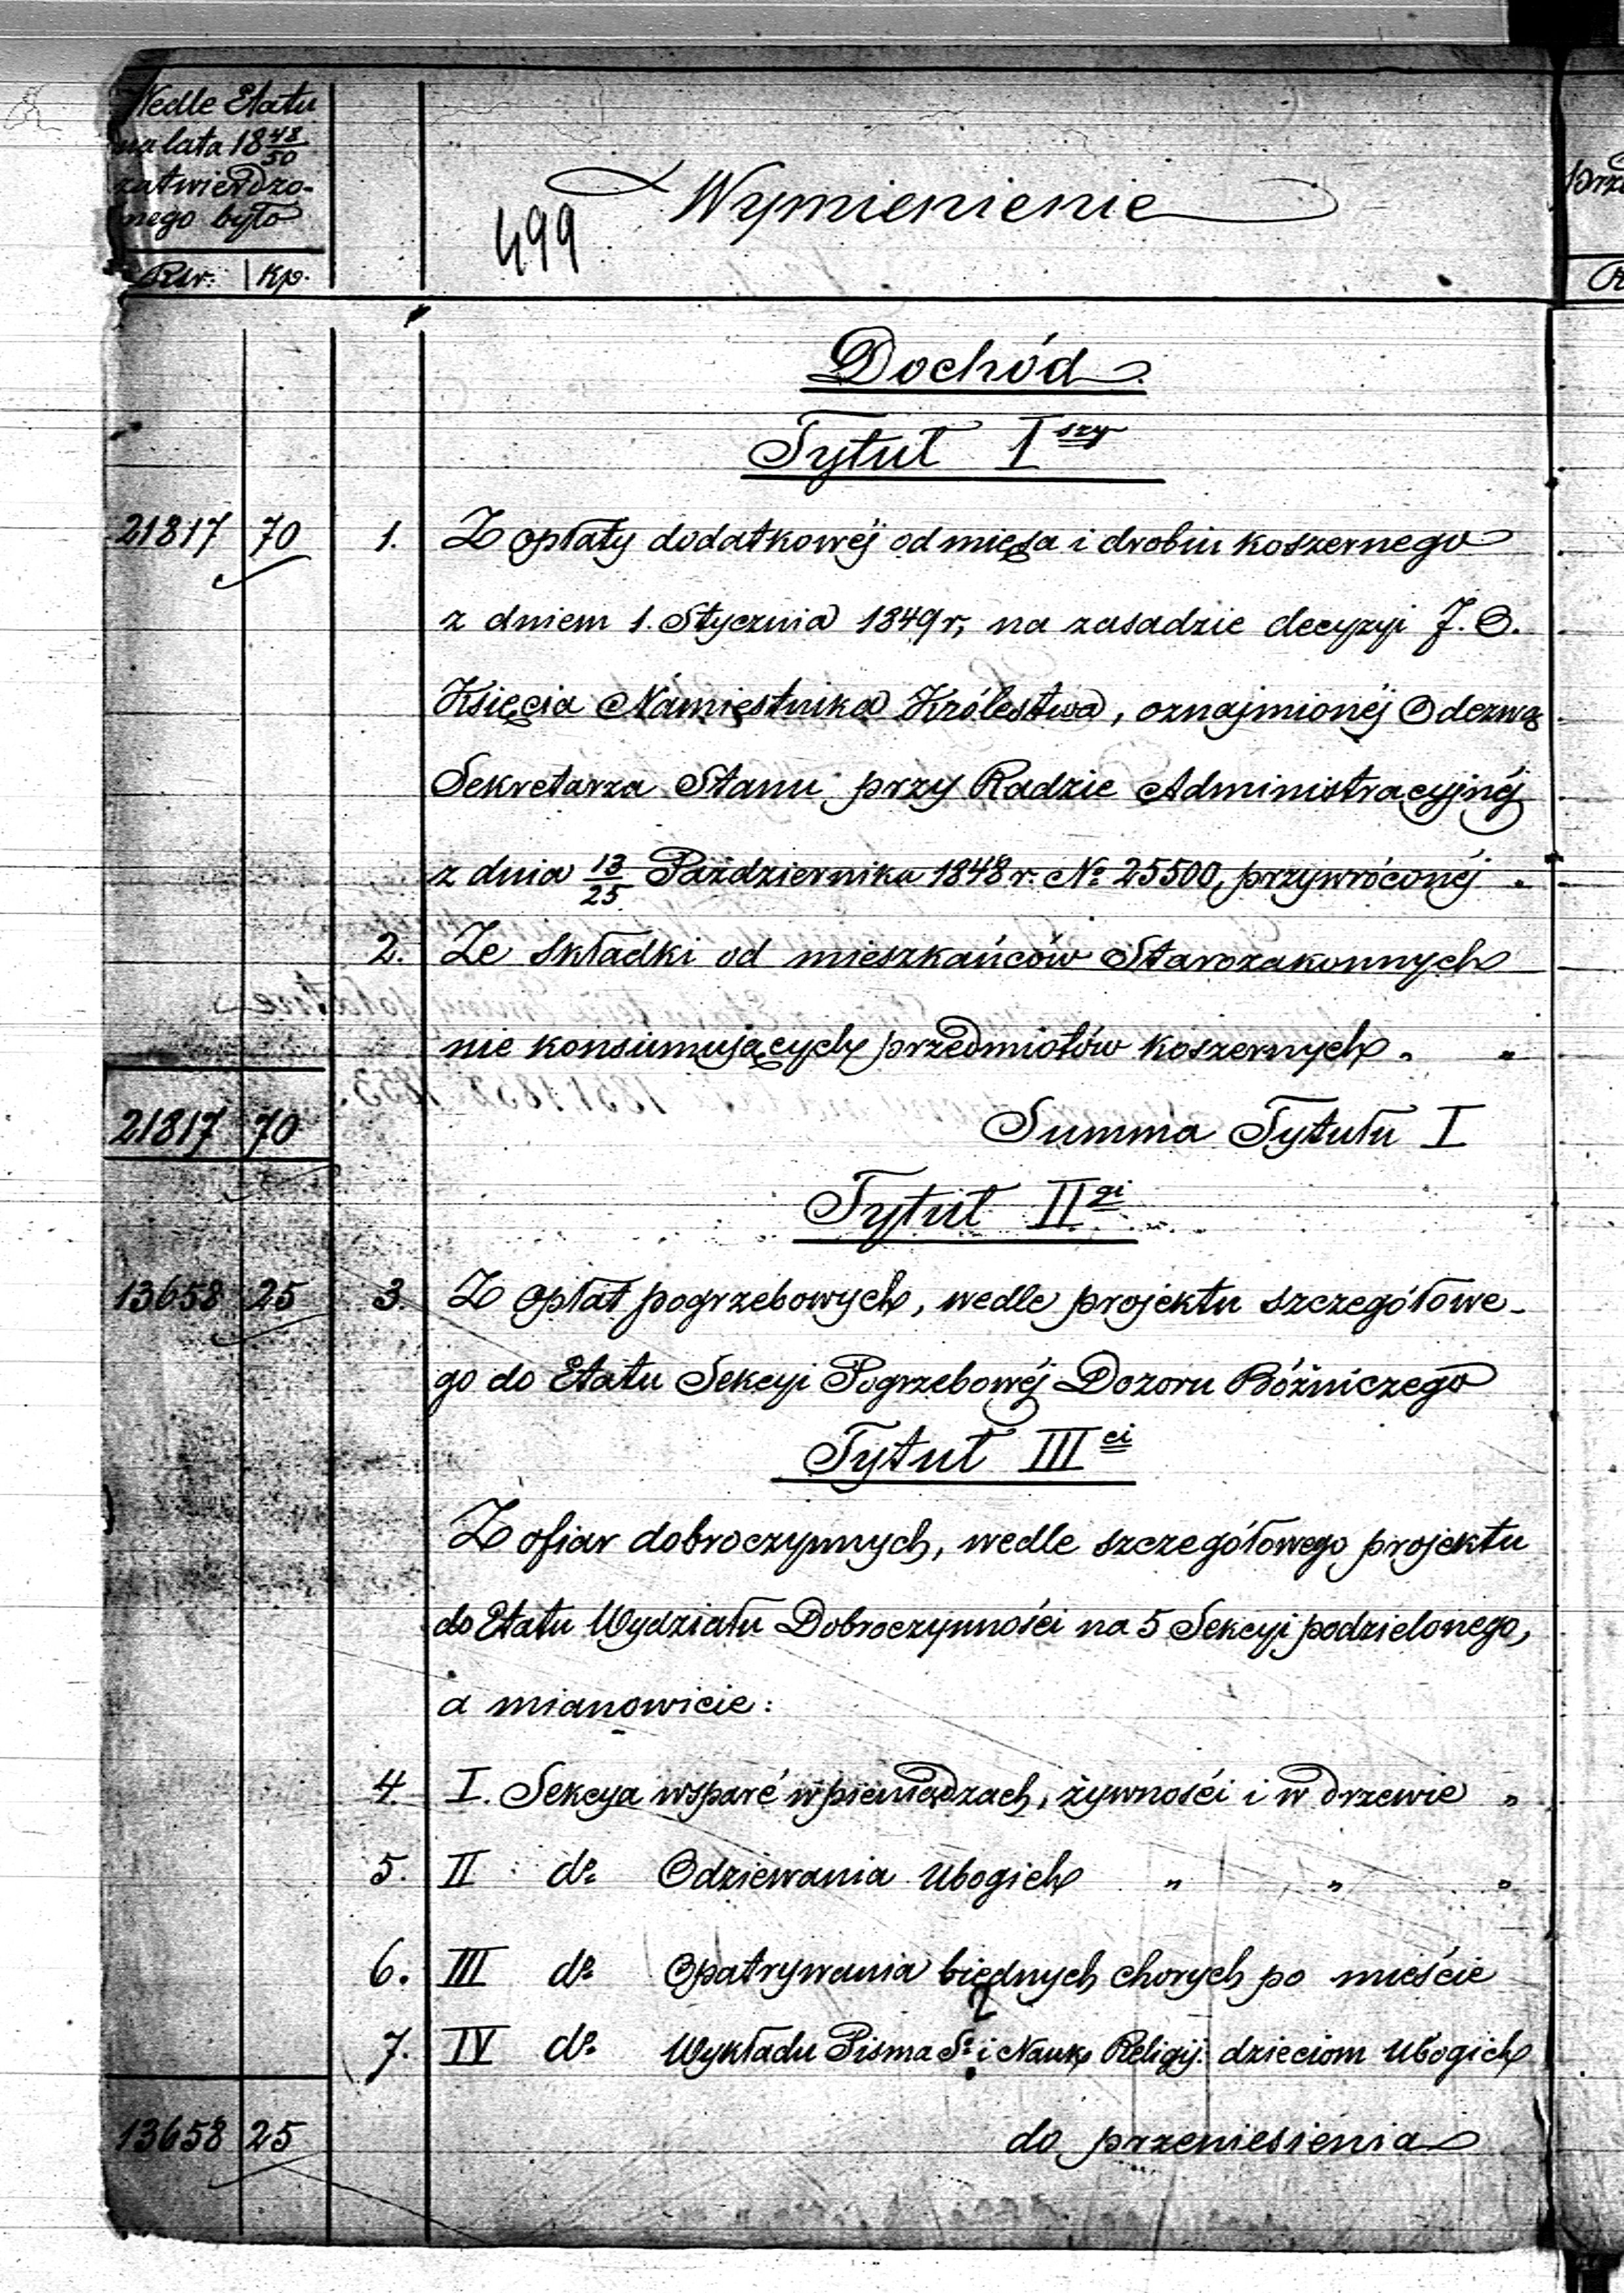 Wedle Etatu
na lata 18 48/50
zatwierdzo-
nego było
Rsr. Kp.
499
Wymienienie
Dochód
Tytuł I szy
21817 70 1. Z opłaty dodatkowéj od mięsa i drobiu koszernego
z dniem 1. Stycznia 1849 r, na zasadzie decyzyi J. O.
Księcia Námiestnika Królestwa, oznajmionéj Odezwą
Sekretarza Stanu przy Radzie Administracyjnéj
z dnia 13/25 Października 1848 r. No 25500, przywróconéj "
2. Ze składki od mieszkańców Starozakonnych
nie konsumujących przedmiotów koszernych " "
21817 70 Summa Tytułu I
Tytuł II gi
13658 25 3. Z opłat pogrzebowych, wedle projektu szczegółowe-
go do Etatu Sekcyi Pogrzebowéj Dozoru Bóżniczego
Tytuł III ci
Z ofiar dobroczynnych, wedle szczegółowego projektu
do Etatu Wydziału Dobroczynności na 5 Sekcyi podzielonego,
a mianowicie:
4. I. Sekcya wsparć w pieniądzach, żywności i w drzewie "
5. II do Odziewania Ubogich " " "
6. III do Opatrywania biednych chorych po mieście
7. IV do Wykładu Pisma S. i Nauk Religij: dzieciom Ubogich
13658 25 do przeniesienia